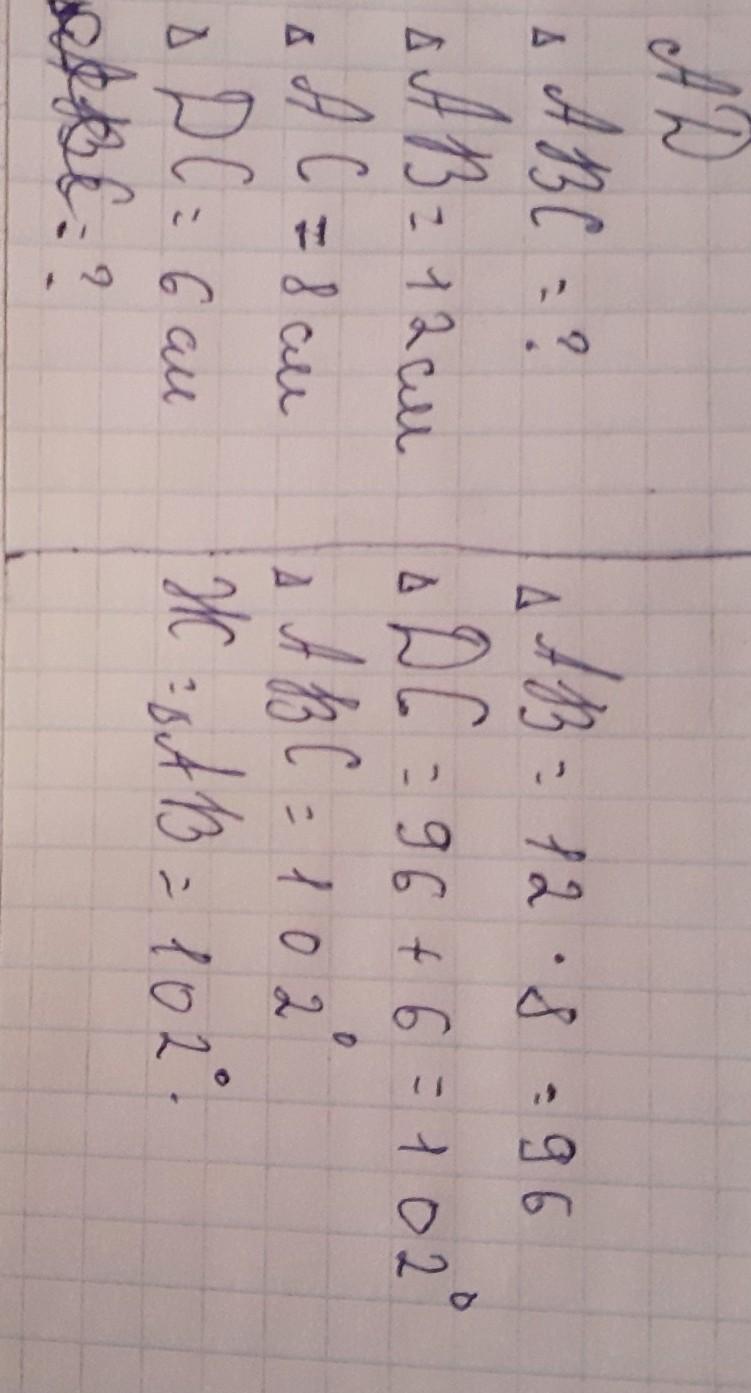 AD
△ ABC = ?
△ AB = 12 см
△ AC = 8 см
△ DC = 6 см
= ?
△ AB = 12 · 8 = 96
△ DC = 96 + 6 = 102°
△ ABC = 102°
Ж = △ AB = 102°.